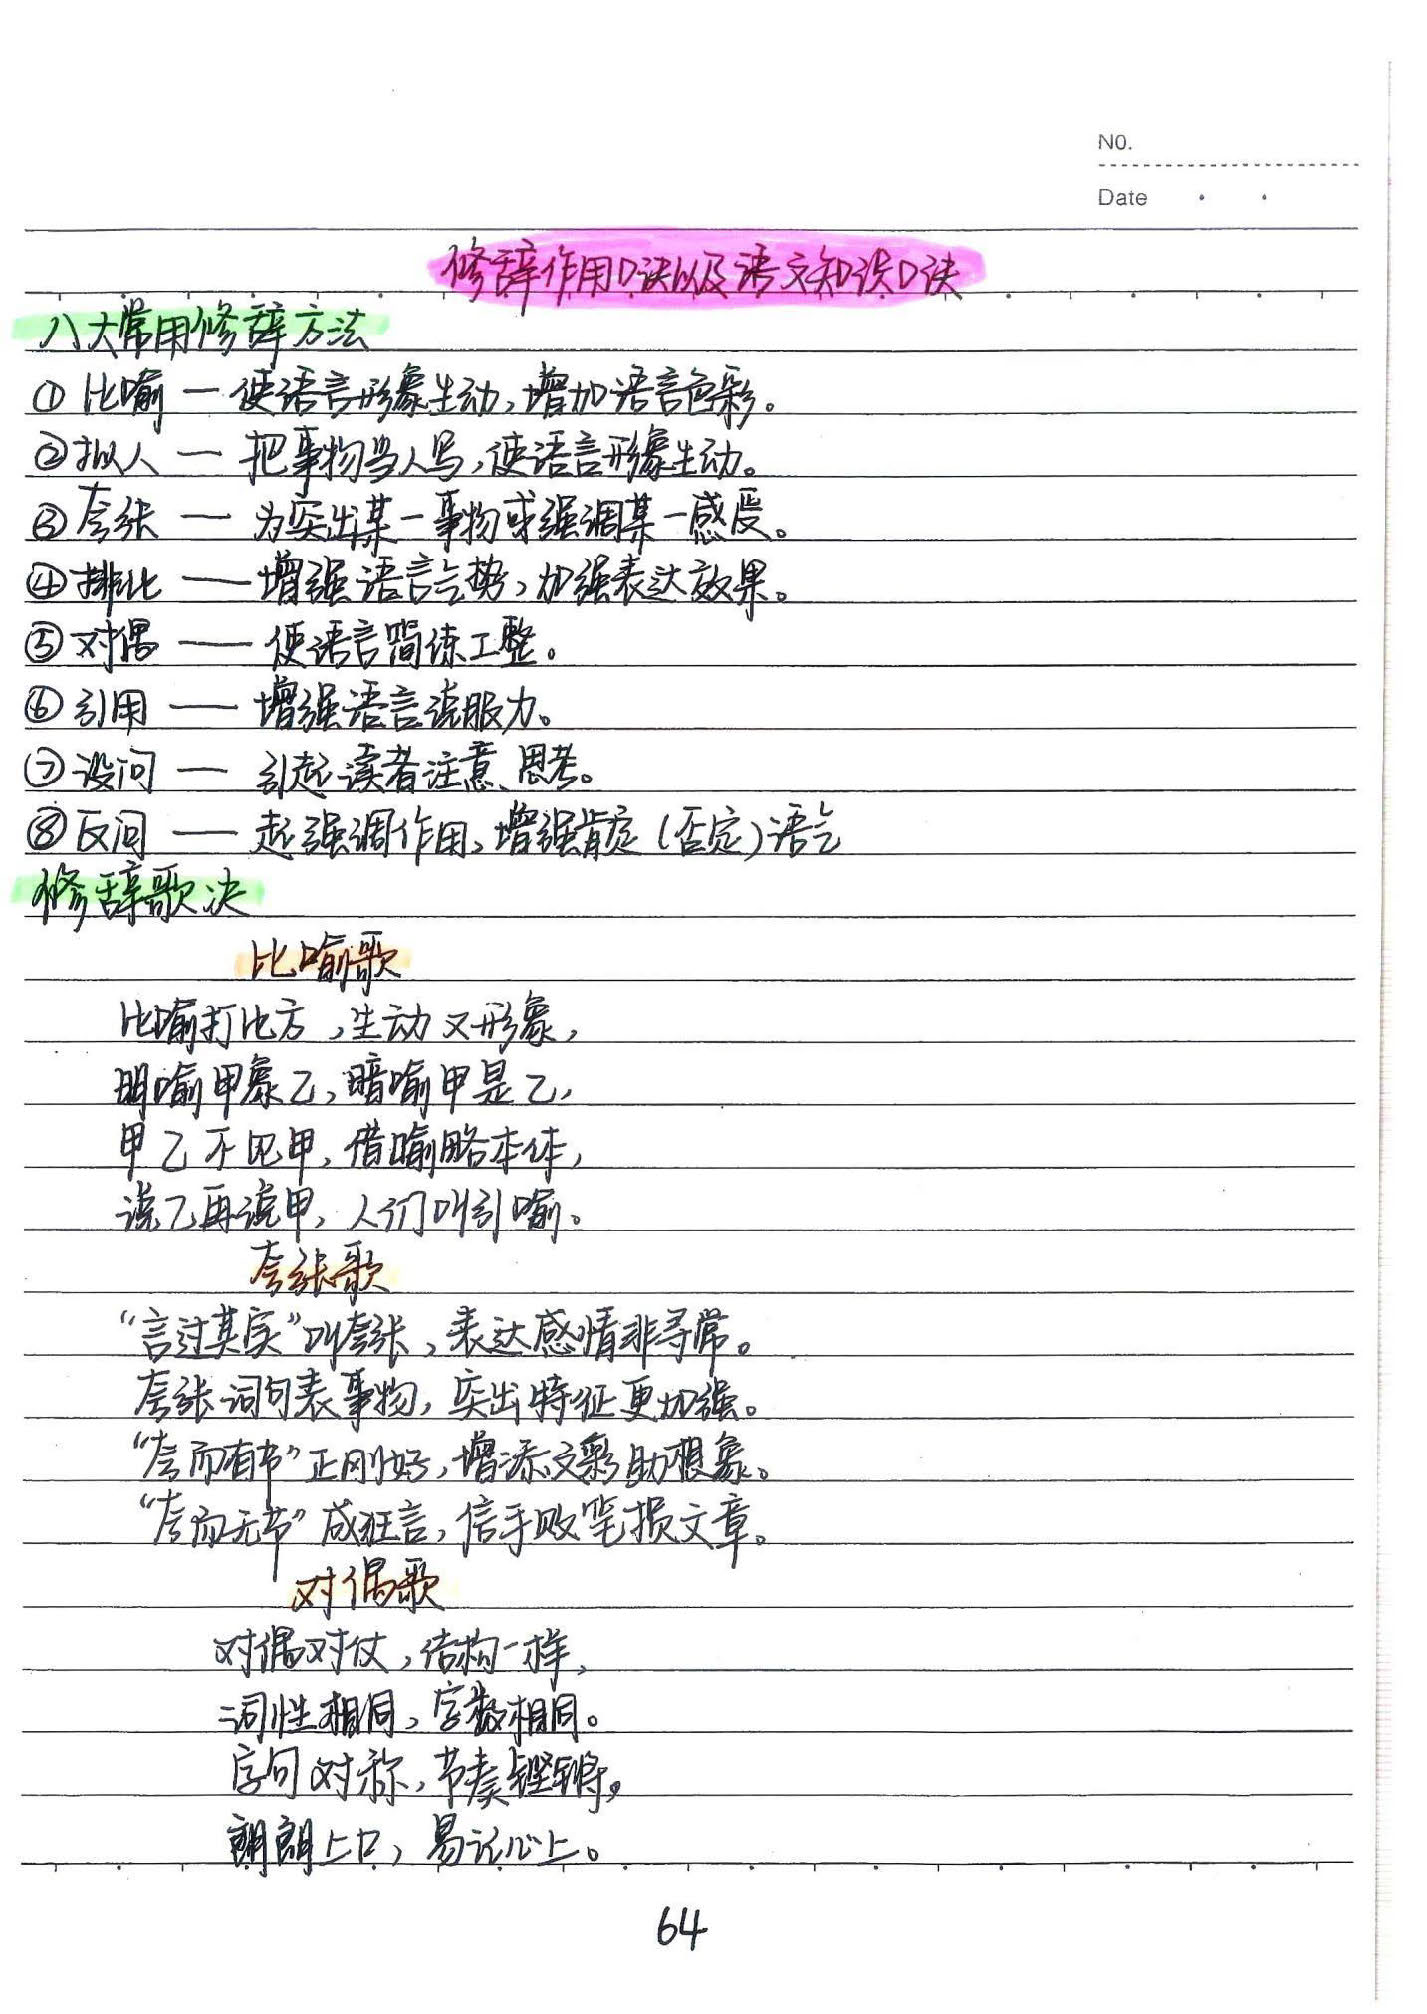 NO.
Date
修辞作用口诀以及语文知识口诀
八大常用修辞方法
① 比喻 — 使语言形象生动,增加语言色彩。
② 拟人 — 把事物当人写,使语言形象生动。
③ 夸张 — 为突出某一事物或强调某一感受。
④ 排比 — 增强语言气势,加强表达效果。
⑤ 对偶 — 使语言简练工整。
⑥ 引用 — 增强语言说服力。
⑦ 设问 — 引起读者注意、思考。
⑧ 反问 — 起强调作用,增强肯定(否定)语气
修辞歌决
比喻歌
比喻打比方,生动又形象,
明喻甲象乙,暗喻甲是乙,
甲乙不见甲,借喻略本体,
说乙再说甲,人们叫引喻。
夸张歌
“言过其实”叫夸张,表达感情非寻常。
夸张词句表事物,突出特征更加强。
“夸而有节”正刚好,增添文彩助想象。
“夸而无节”成狂言,信手败笔损文章。
对偶歌
对偶对仗,结构一样,
词性相同,字数相同。
字句对称,节奏铿锵,
朗朗上口,易记心上。
64